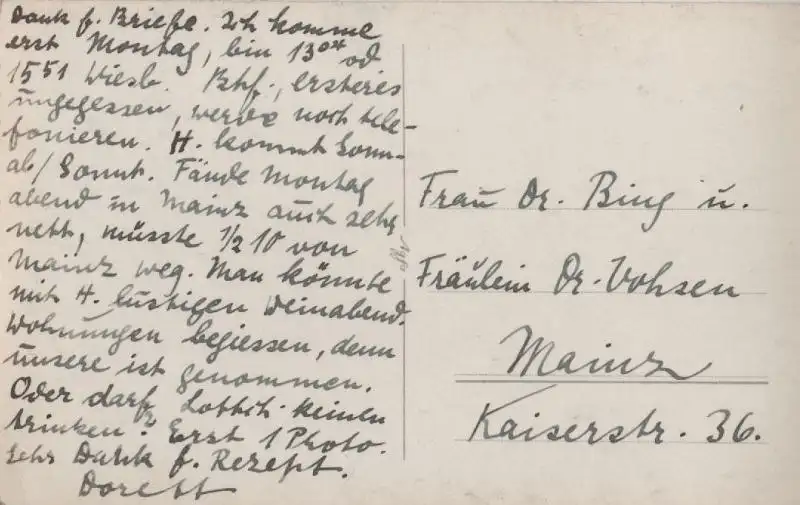 Dank f. Briefe. Ich komme
erst Montag, bin 13⁰⁴ od
15⁵¹ Wiesb. Bhf., ersteres
ungegessen, werde noch tele-
fonieren. H. kommt Sonn-
ab/Sonnt. Fände Montag
abend in Mainz auch sehr
nett, müsste 1/2 10 von
Mainz weg. Man könnte
mit H. lustigen Weinabend.
Wohnungen begiessen, denn
unsere ist genommen.
Oder darf Lottch. keinen
trinken? Erst 1 Photo.
Sehr Dank f. Rezept.
Dorett
Frau Dr. Bing u.
Fräulein Dr. Vohsen
Mainz
Kaiserstr. 36.